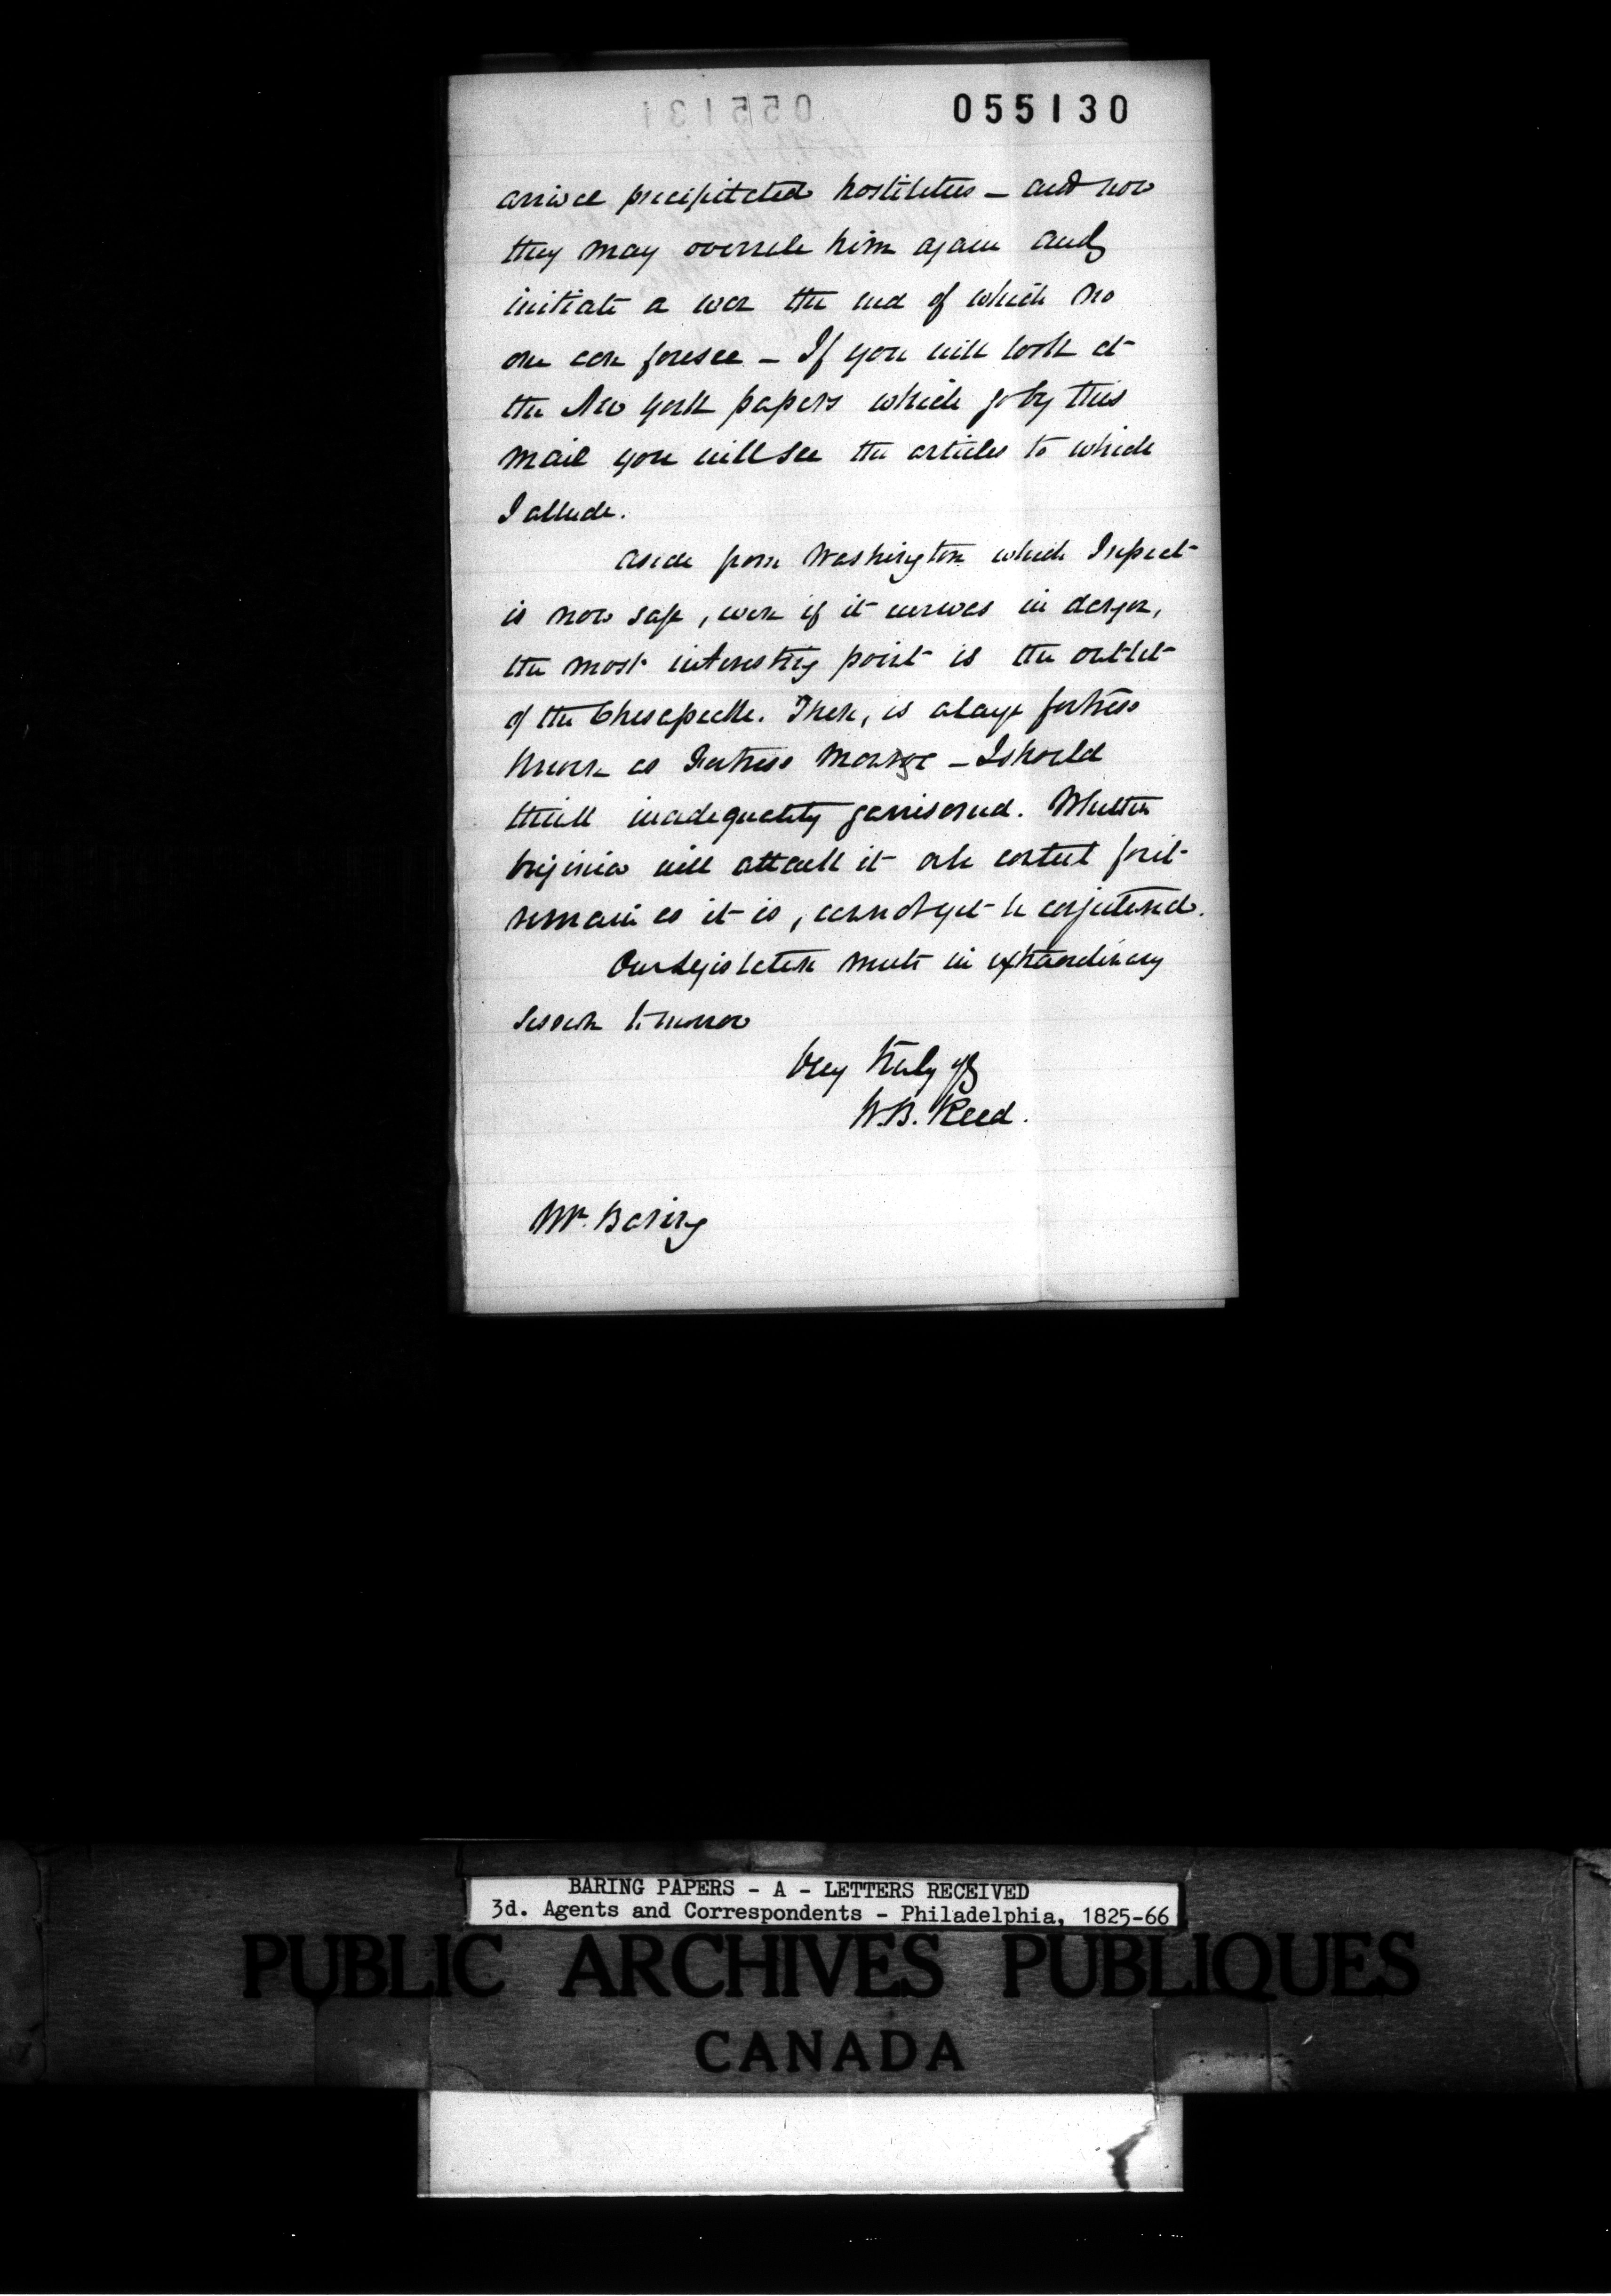 055130
055131
arrival precipitated hostilities – and now
they may overrule him again and
initiate a war the end of which no
one can foresee – If you will look at
the New York papers which go by this
mail you will see the articles to which
I allude.
Aside from Washington which I expect
is now safe, even if it ever was in danger,
the most interesting point is the outlet
of the Chesapeake. There, is a large fortress
known as Fortress Monroe – I should
think inadequately garrisoned. Whether
Virginia will attack it or be content for it
remain as it is, cannot yet be conjectured.
Our Legislature meets in extraordinary
session to morrow
Very truly yrs
W.B. Reed.
Mr. Baring
BARING PAPERS - A - LETTERS RECEIVED
3d. Agents and Correspondents - Philadelphia, 1825-66
PUBLIC ARCHIVES PUBLIQUES
CANADA